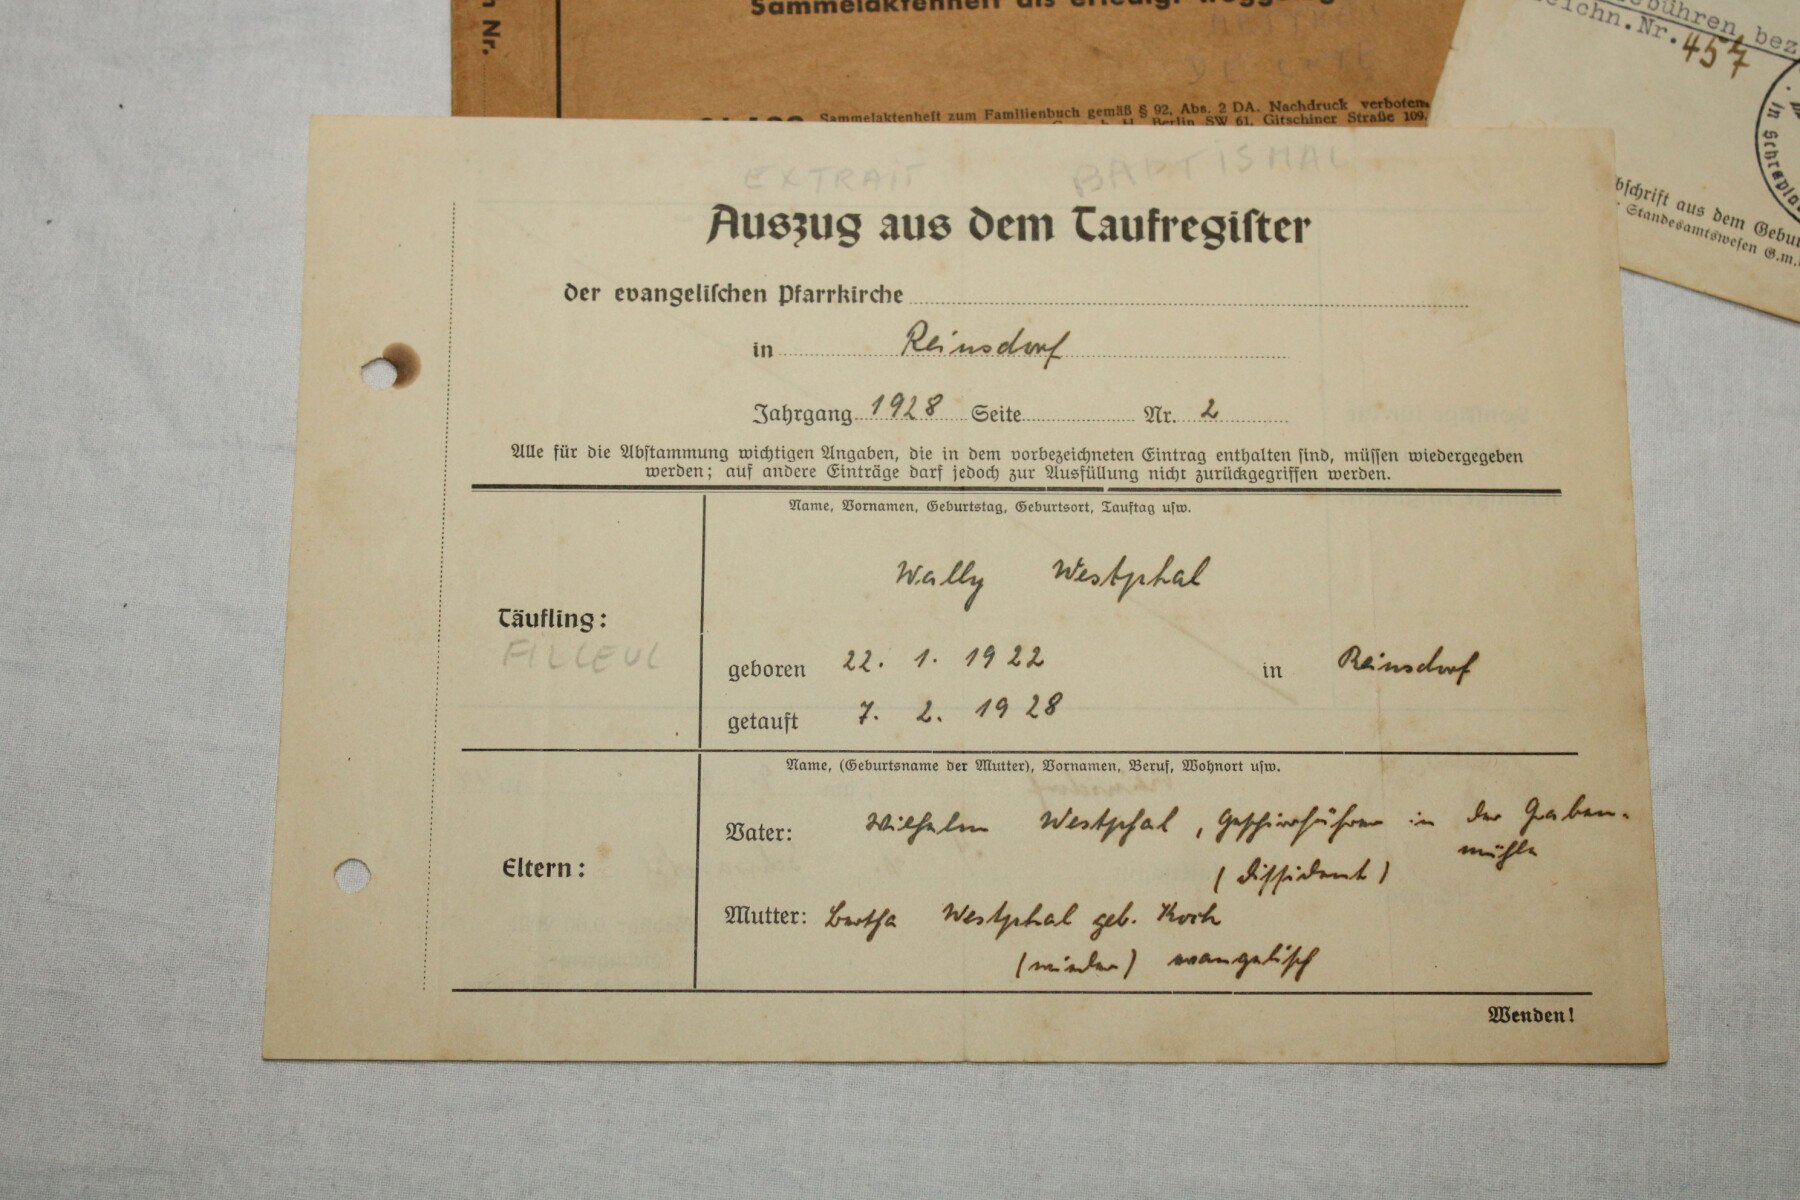 Nr.
Sammelaktenheft als erledigt
DE
Sammelaktenheft zum Familienbuch gemäß § 92, Abs. 2 DA. Nachdruck verboten.
Berlin SW 61, Gitschiner Straße 109.
Gebühren bez
Nr. 457
in Schraplau
bſchrift aus dem Gebur
Standesamtsweſen G.m.
EXTRAIT BAPTISMAL
Auszug aus dem Taufregiſter
der evangeliſchen Pfarrkirche
in Reinsdorf
Jahrgang 1928 Seite Nr. 2
Alle für die Abſtammung wichtigen Angaben, die in dem vorbezeichneten Eintrag enthalten ſind, müſſen wiedergegeben
werden; auf andere Einträge darf jedoch zur Ausfüllung nicht zurückgegriffen werden.
Name, Vornamen, Geburtstag, Geburtsort, Tauftag uſw.
Wally Westphal
Täufling:
FILLEUL
geboren 22. 1. 1922 in Reinsdorf
getauft 7. 2. 1928
Name, (Geburtsname der Mutter), Vornamen, Beruf, Wohnort uſw.
Vater: Wilhelm Westphal, Geschirrführer in der Graben-
mühle
(Dissident)
Eltern:
Mutter: Bertha Westphal geb. Koch
(wieder) evangelisch
Wenden!